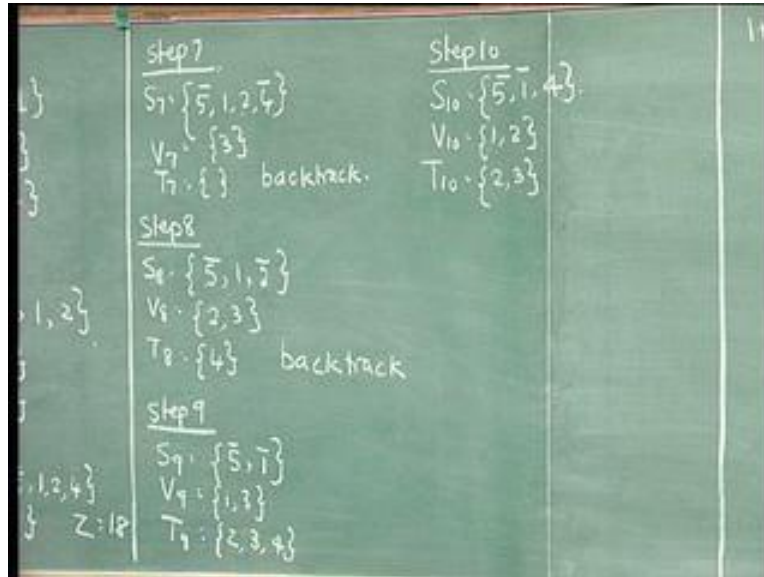 1}
}
}
, 1, 2}
}
}
, 1, 2, 4}
} Z=18
Step7
S₇ = {5̅, 1, 2, 4̅}
V₇ = {3}
T₇ = { } backtrack.
Step8
S₈ = {5̅, 1, 2̅}
V₈ = {2,3}
T₈ = {4} backtrack
Step9
S₉ = {5̅, 1̅}
V₉ = {1,3}
T₉ = {2,3,4}
Step10
S₁₀ = {5̅, 1̅, 4}.
V₁₀ = {1,2}
T₁₀ = {2,3}